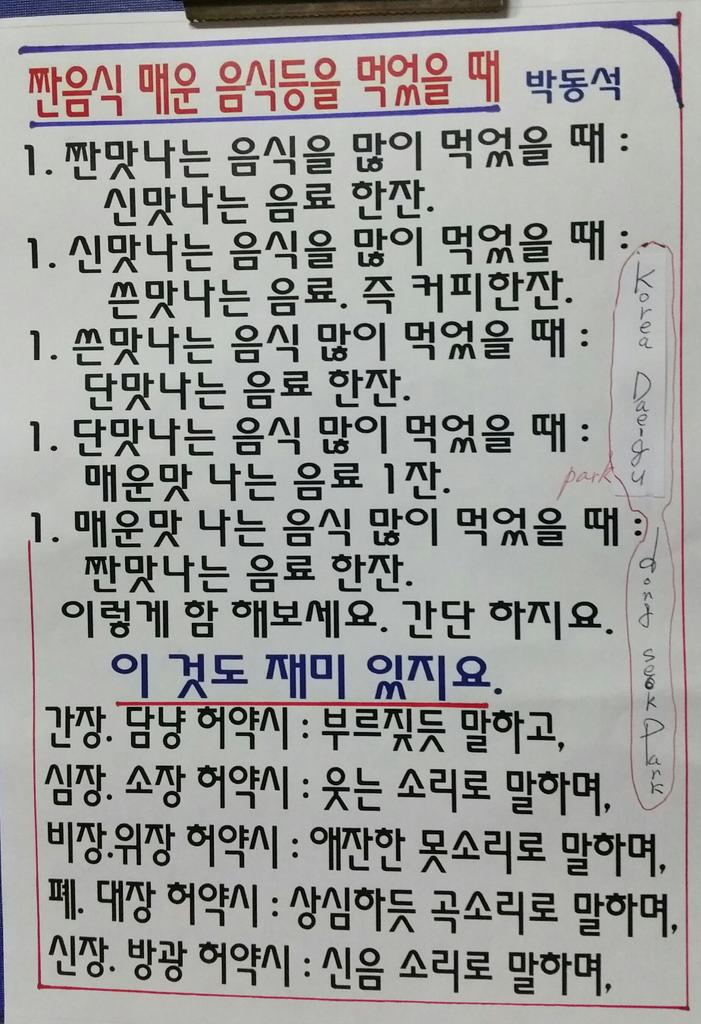 짠음식 매운 음식등을 먹었을 때 박동석
1. 짠맛나는 음식을 많이 먹었을 때 :
신맛나는 음료 한잔.
1. 신맛나는 음식을 많이 먹었을 때 :
쓴맛나는 음료. 즉 커피한잔.
1. 쓴맛나는 음식 많이 먹었을 때 :
단맛나는 음료 한잔.
1. 단맛나는 음식 많이 먹었을 때 :
매운맛 나는 음료 1잔.
1. 매운맛 나는 음식 많이 먹었을 때 :
짠맛나는 음료 한잔.
이렇게 함 해보세요. 간단 하지요.
이 것도 재미 있지요.
간장. 담낭 허약시 : 부르짖듯 말하고,
심장. 소장 허약시 : 웃는 소리로 말하며,
비장.위장 허약시 : 애잔한 못소리로 말하며,
폐. 대장 허약시 : 상심하듯 곡소리로 말하며,
신장. 방광 허약시 : 신음 소리로 말하며,
Korea Dae-gu
park
dong seok Park